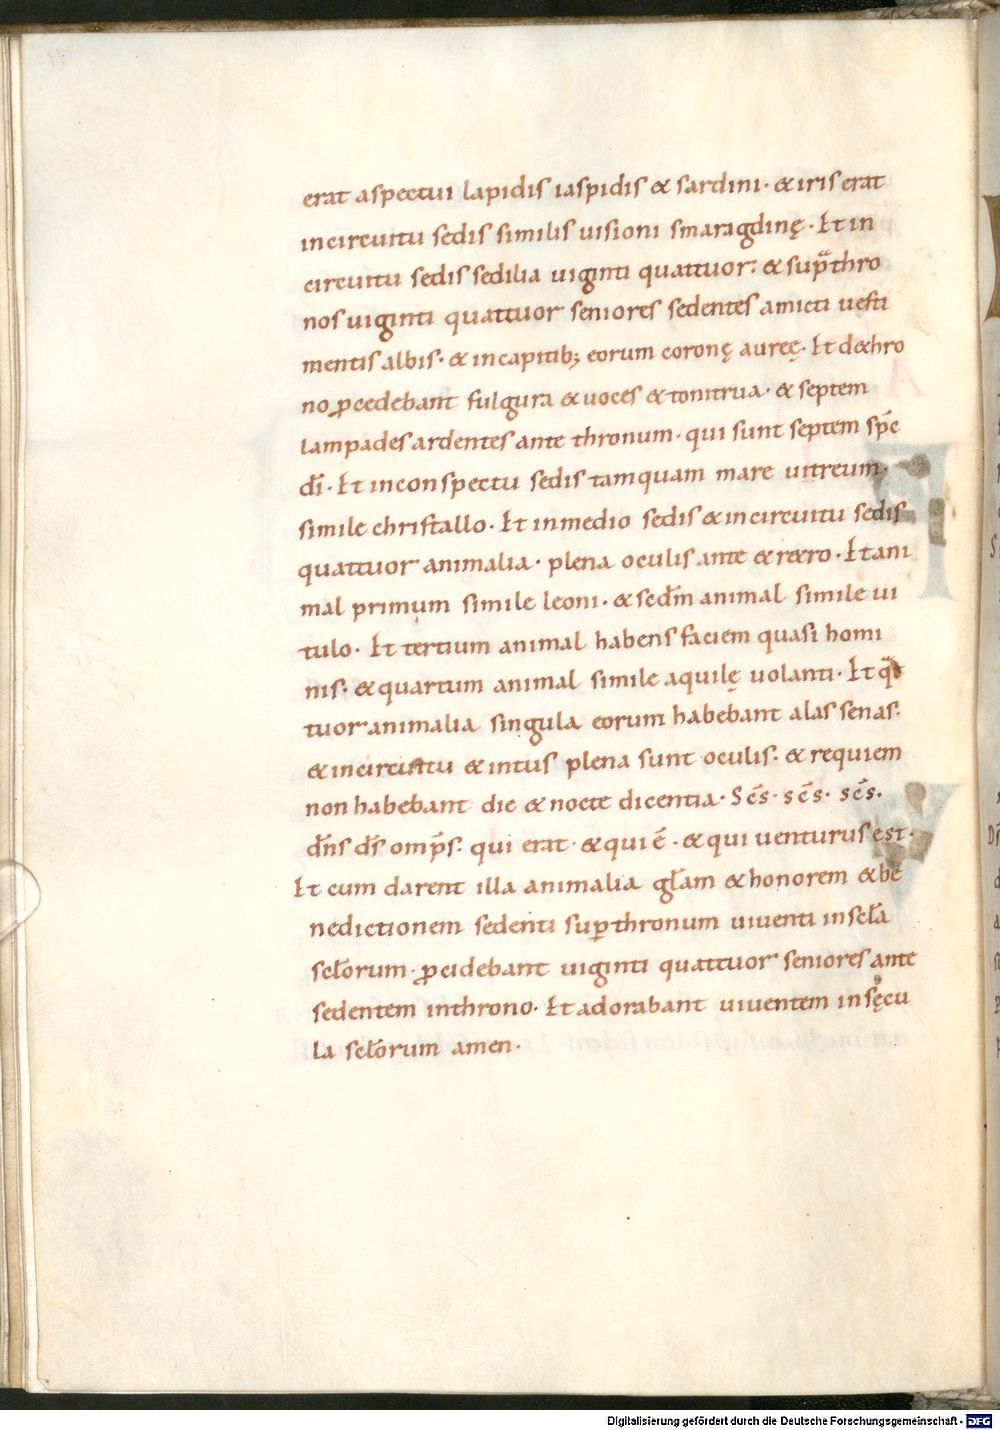 erat aspectui lapidis iaspidis & sardini· & iris erat
in circuitu sedis similis uisioni smaragdinę· Et in
circuitu sedis sedilia uiginti quattuor· & supͣ thro
nos uiginti quattuor seniores sedentes amicti uesti
mentis albis· & in capitib; eorum coronę aureę· Et de thro
no ꝓcedebant fulgura & uoces & tonitrua· & septem
lampades ardentes ante thronum· qui sunt septem sp̄c
dī· Et in conspectu sedis tamquam mare uitreum·
simile christallo· Et in medio sedis & in circuitu sedis
quattuor animalia· plena oculis ante & r&ro· Et ani
mal primum simile leoni· & scd̄m animal simile ui
tulo· Et tertium animal habens faciem quasi homi
nis· & quartum animal simile aquilę uolanti· Et qͣt
tuor animalia singula eorum habebant alas senas·
& in circuitu & intus plena sunt oculis· & requiem
non habebant die & nocte dicentia· Sc̄s· sc̄s· sc̄s·
dn̄s ds̄ omp̄s· qui erat· & qui ē· & qui uenturus est·
Et cum darent illa animalia gl̄am & honorem & be
nedictionem sedenti suꝑ thronum uiuenti in scl̄a
scl̄orum· ꝓcidebant uiginti quattuor seniores ante
sedentem in throno· Et adorabant uiuentem in sęcu
la scl̄orum amen·
Digitalisierung gefördert durch die Deutsche Forschungsgemeinschaft - DFG